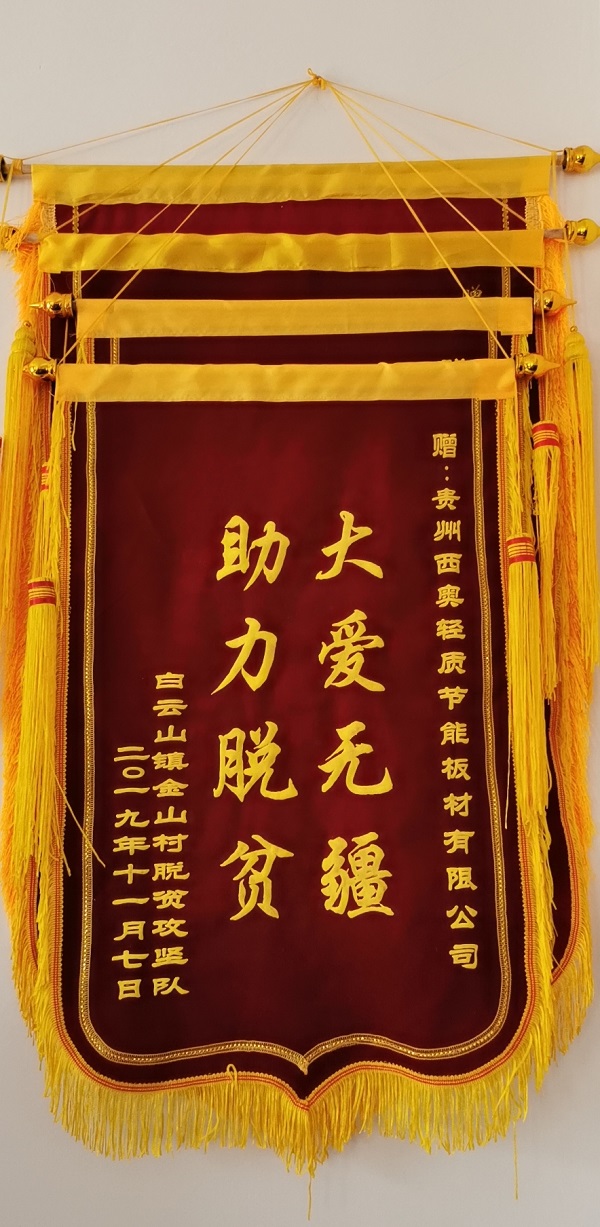 赠：贵州西奥轻质节能板材有限公司
大爱无疆
助力脱贫
白云山镇金山村脱贫攻坚队
二〇一九年十一月七日